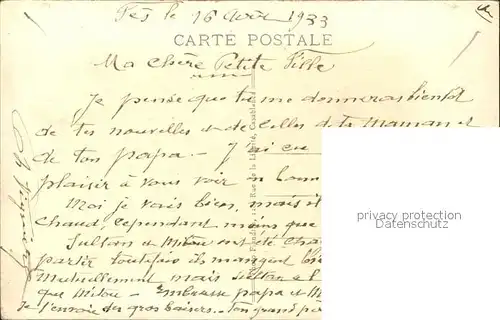 Fès le 16 Août 1933
CARTE POSTALE
Ma chère Petite Fille
Je pense que tu me donneras bientôt
de tes nouvelles et de celles de ta Maman et
de ton papa - J'ai eu
plaisir à vous voir en bonn
Moi je vais bien, mais il
Chaud, cependant moins que
Sultan et Mitou ont été
partir toutefois ils mangent bi
Mutuellement mais Sultan a l
que Mitou - Embrasse papa et M
Je t'envoie des gros baisers. Ton grand pè
Rue de la Liberté, Casablanca
privacy protection
AnsichtskartenVersand.com